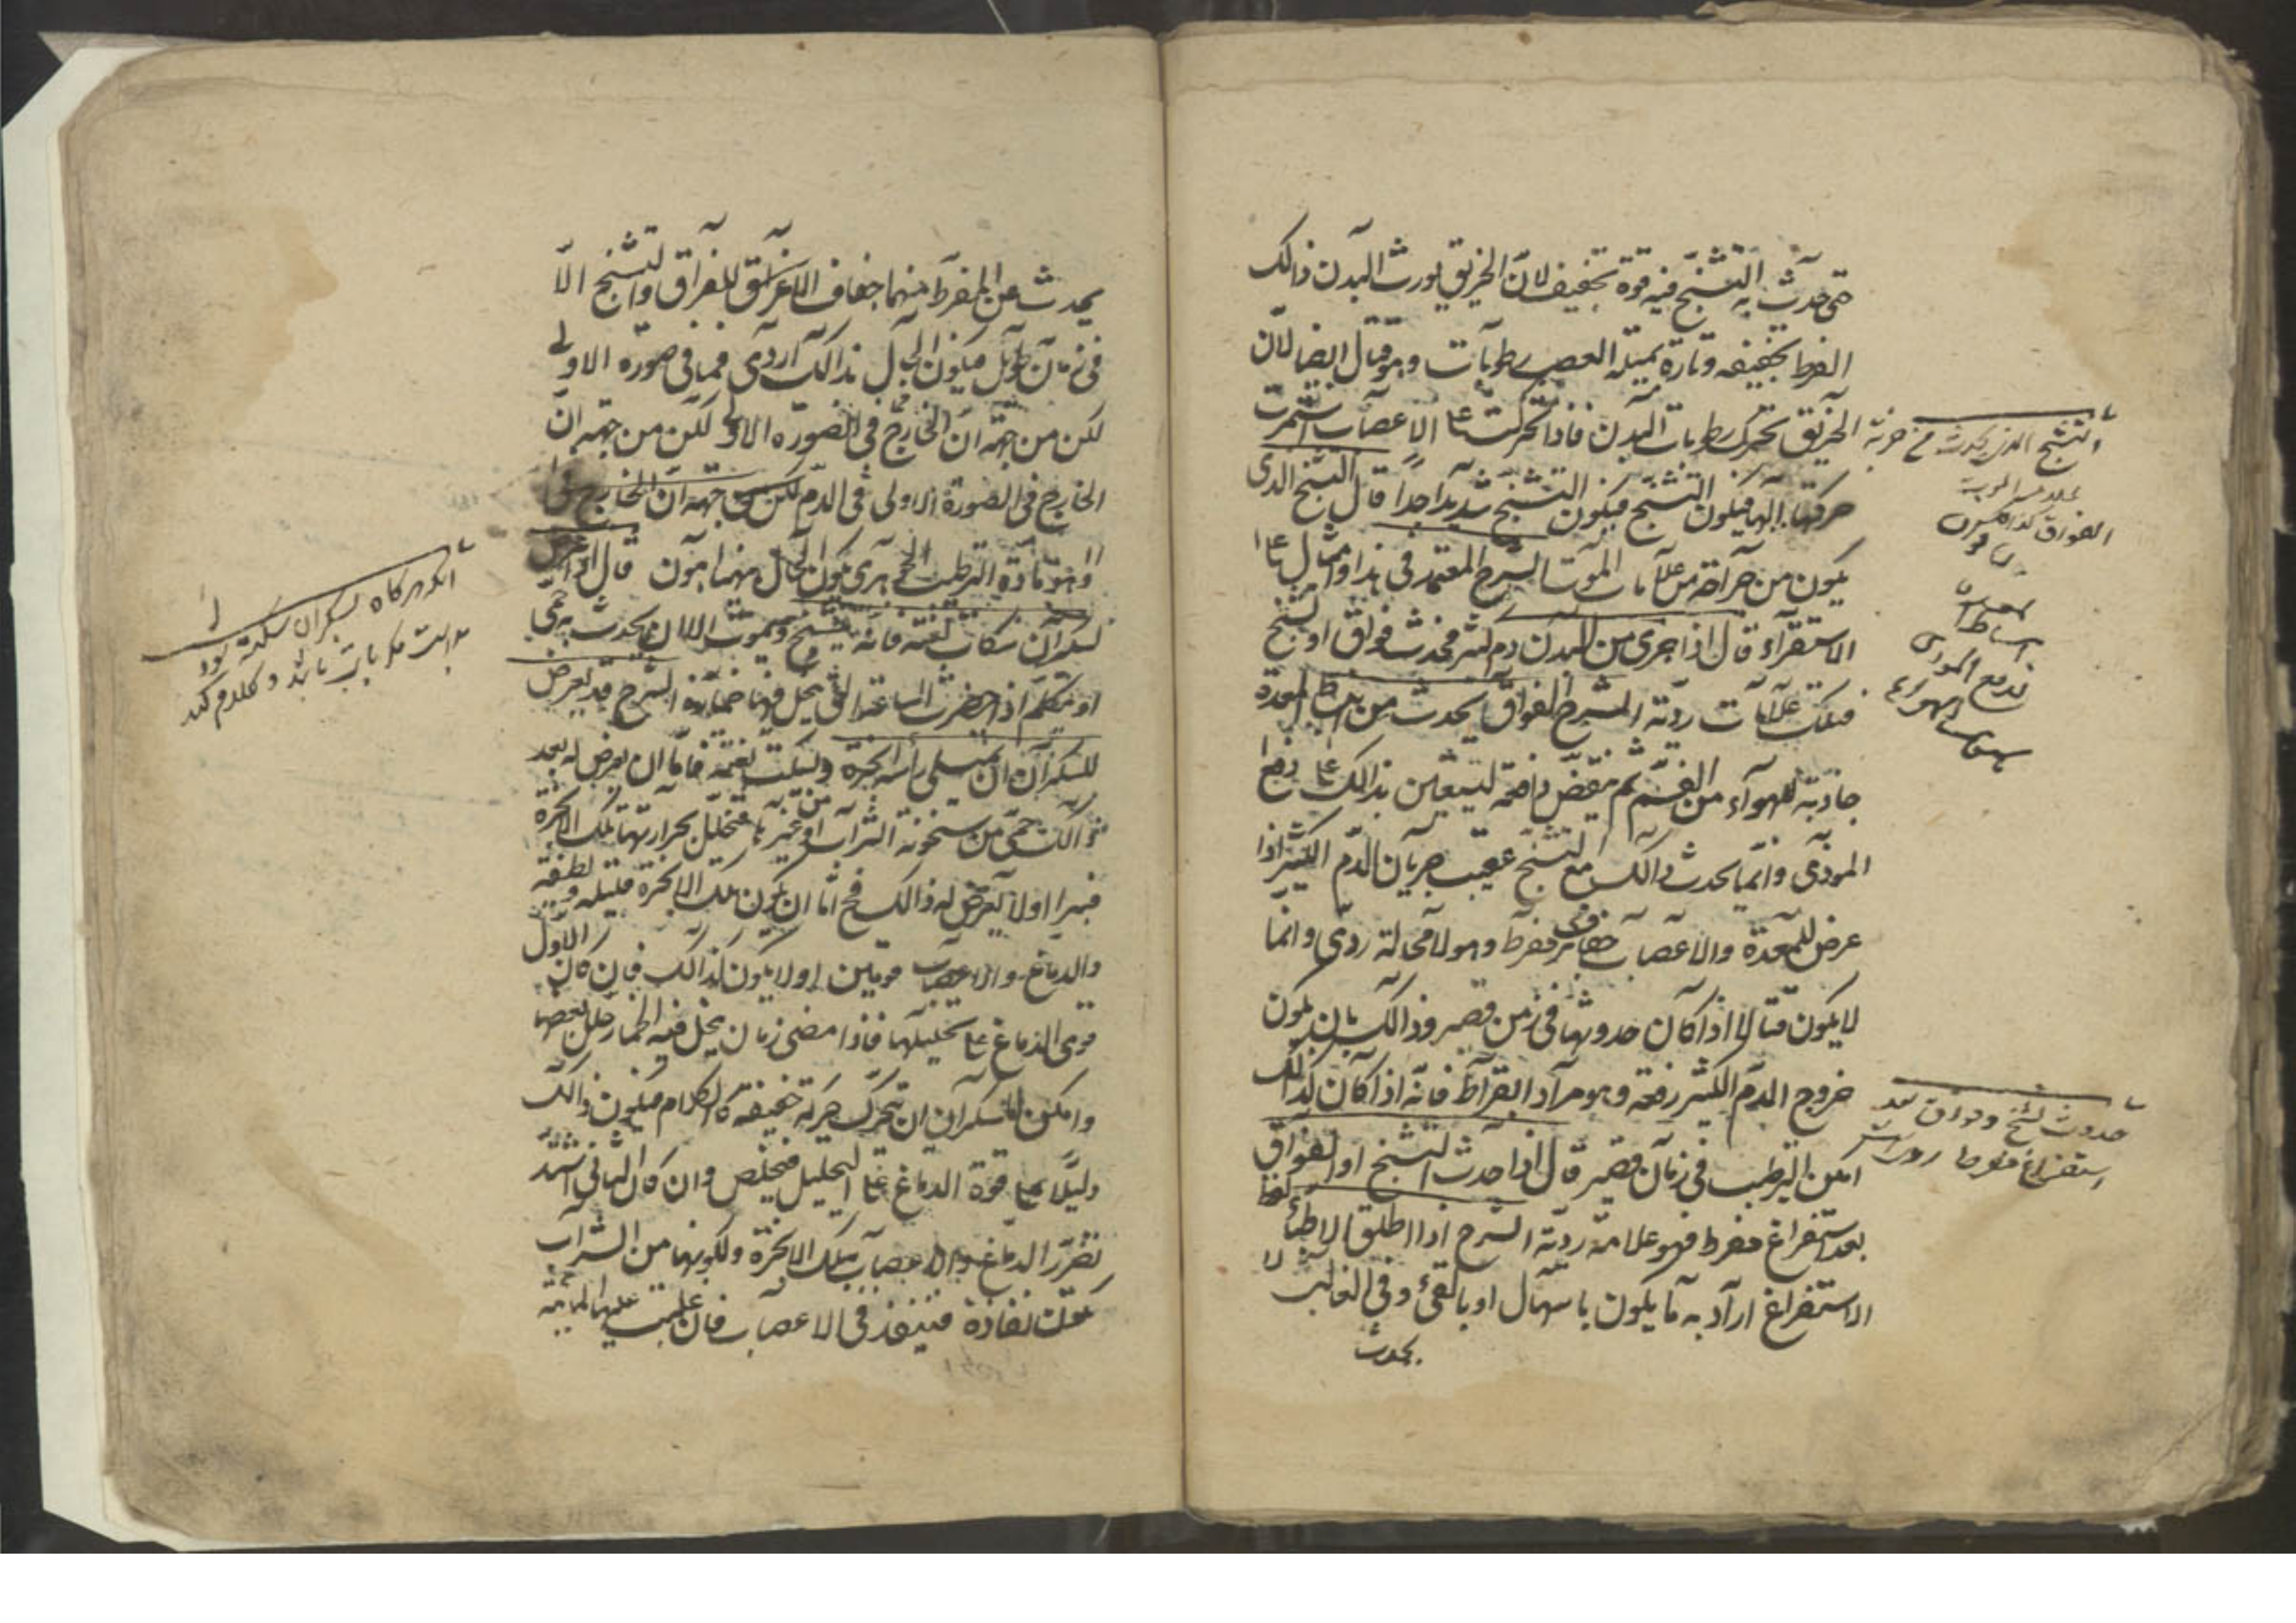 حتى حدث به التشنج فيه قوة تجفيف لان الخريق يورث البدن ذالك
المفرط بتجفيفه وتارة يميله العصب رطوبات وهو قتال ايضا لان
الخريق تحرك رطوبات البدن فاذا تحركت على الاعصاب استمرت
حركتها اليها فيكون التشنج فيكون التشنج شديدا جدا قال التشنج الذى
يكون من جراحة من علامات الموت الشرح المعتمد فى هذا وامثاله على
الاستقراء قال اذا جرى من البدن دم كثير فحدث فواق او تشنج
فتلك علامات ردية الشرح الفواق يحدث من انبساط المعدة
جاذبة للهواء من الفم ثم تنقبض دافعة لتستعين بذالك على دفع
الموذى وانما يحدث ذالك مع التشنج عقيب جريان الدم الكثير اذا
عرض للمعدة والاعصاب جفاف مفرط وهو لا محالة ردى وانما
لا يكون قتالا اذا كان حدوثها فى زمن قصير وذالك بان يكون
خروج الدم الكثير دفعة وهو مراد ابقراط فانه اذا كان كذالك
امكن الترطيب فى زمان قصير قال اذا حدث التشنج او الفواق
بعد استفراغ مفرط فهو علامة ردية الشرح اذا اطلق الاطباء لفظ
الاستفراغ اراد به ما يكون باسهال او بالقئ وفى الغالب لا
يحدث
التشنج الذى يحدث من خربة
الفواق
حدوث تشنج وفواق بعد
استفراغ مفرط ردى است
يحدث عن المفرط منهما جفاف الاعراق للفواق والتشنج الا
فى زمان طويل فيكون الحال بذالك اردى مما فى صورة الاولى
لكن من جهة ان الخارج فى الصورة الاولى لكن من جهة ان
الخارج فى الصورة الاولى فى الدم لكن من جهة ان الخارج
وهو مادة الترطيب الجوهرى يكون الحال منهما اهون قال اذا عرض
لسكران سكات بغتة فانه يتشنج ويموت الا ان يحدث به حمى
او يتكلم اذا حضرت الساعة التى يحل فيها خماره الشرح قد يعرض
للسكران ان يمتلى راسه ابخرة ويسكت بغتة فاما ان يعرض له بعد
ذالك حمى من سخونة الشراب او غيرها فتحلل بحرارتها تلك الابخرة
فيبرا اولا يعرض له ذالك فح اما ان يكون تلك الابخرة قليلة لطيفة
والدماغ والاعصاب قويتين اولا يكون كذالك فان كان الاول
قوى الدماغ على تحليلها فاذا مضى زمان يحل فيه الخمار تحلل بعضها
وامكن للسكران ان يتحرك حركة خفيفة كالكلام فيكون ذالك
دليلا على قوة الدماغ على التحليل فيخلص وان كان الثانى اشتد
تضرر الدماغ والاعصاب بتلك الابخرة ولكونها من الشراب
تكون نفاذة فينفذ فى الاعصاب فان غلبت عليها المائية
اگر هرگاه بسكران سكته بود